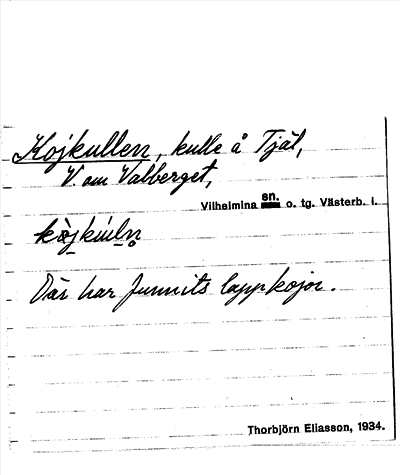 Kojkullen, kulle å Tjäl,
V. om Valberget,
Vilhelmina sn. o. tg. Västerb. l.
kòjkúln̥
Där har funnits lappkojor.
Thorbjörn Eliasson, 1934.